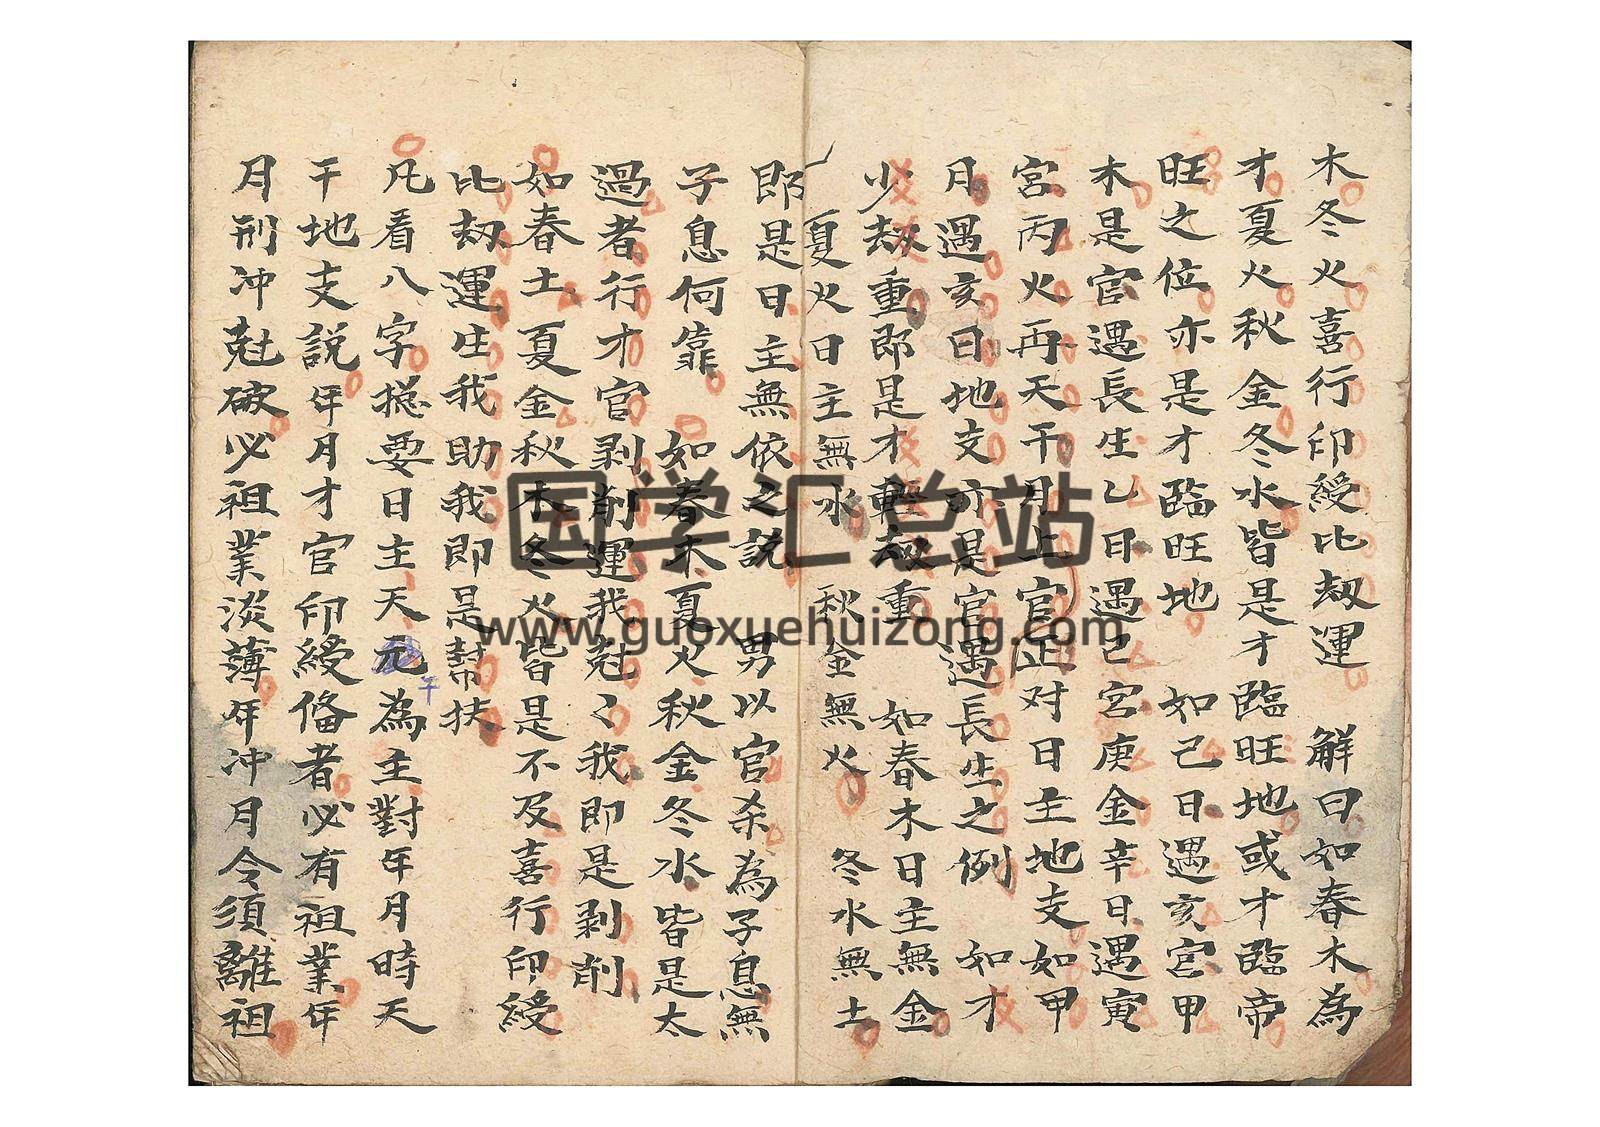 木冬火喜行印綬比刼運　解曰如春木為
才夏火秋金冬水皆是才臨旺地或才臨帝
旺之位亦是才臨旺地　如己日遇亥宮甲
木是官遇長生乙日遇巳宮庚金辛日遇寅
宮丙火再天干月上官正对日主地支如甲
月遇亥日地支亦是官遇長生之例　如才
少刼重即是才輕刼重　如春木日主無金
夏火日主無水　秋金無火　冬水無土
即是日主無依之說　男以官杀為子息無
子息何靠　如春木夏火秋金冬水皆是太
過者行才官剥削運我尅〻我即是剥削
如春土夏金秋木冬火皆是不及喜行印綬
比刼運生我助我即是幫扶
凡看八字揔要日主天元為主對年月時天
干
干地支說年月才官印綬俻者必有祖業年
月刑冲尅破必祖業淡薄年冲月令須離祖
国学汇总站
www.guoxuehuizong.com